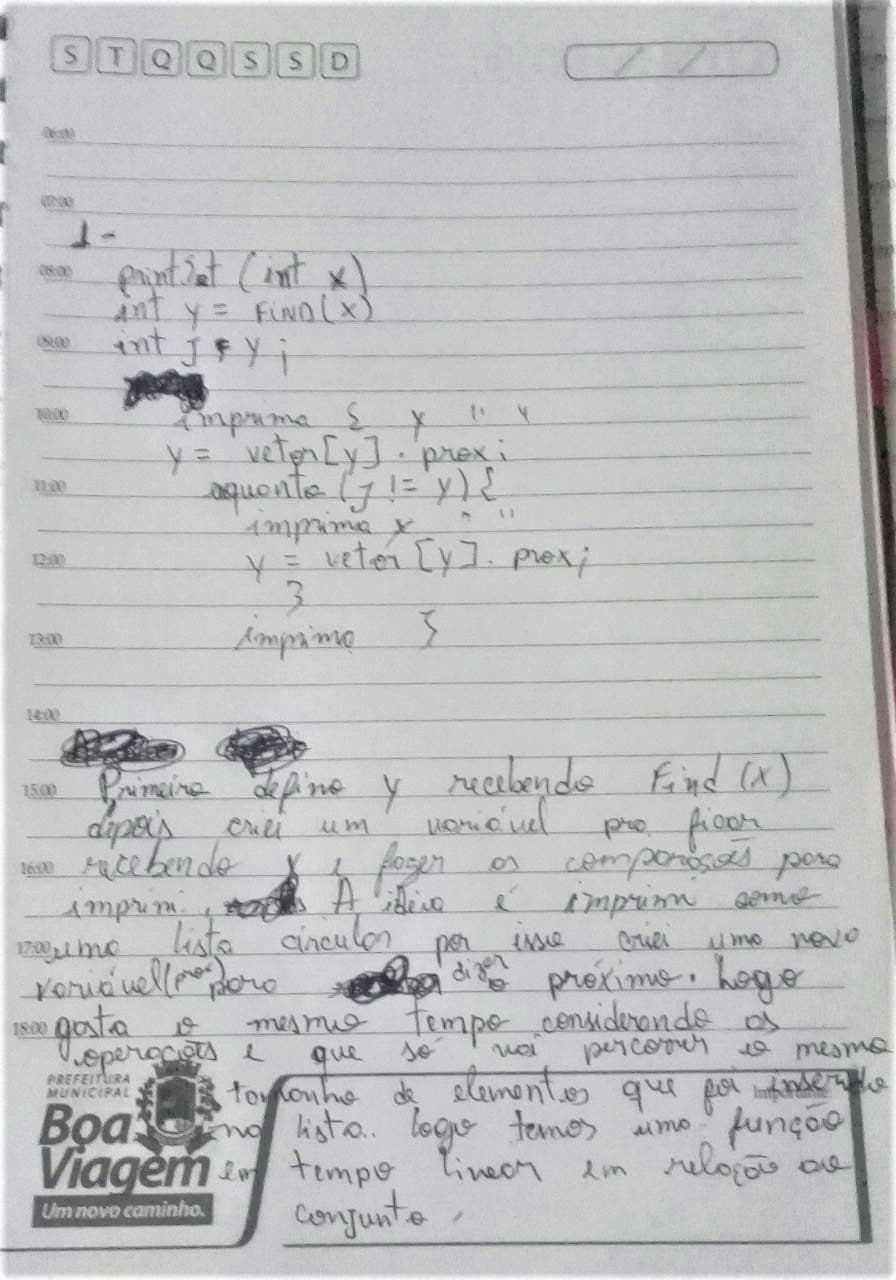 S T Q Q S S D
/ /
06:00
07:00
1-
08:00 printSet (int x)
int y = FIND(x)
09:00 int j = y ;
10:00 imprima { y " "
y = vetor[y] . prox;
11:00 enquanto (j != y) {
imprima y " "
12:00 y = vetor [y] . prox;
}
13:00 imprima }
14:00
15:00 Primeiro defino y recebendo Find (x)
depois criei um variável pra ficar
16:00 recebendo y e fazer as comparações para
imprimi. A ideia é imprimi como
17:00 uma lista circular por isso criei uma nova
variável (prox) para dizer o próximo. Logo
18:00 gasta o mesmo tempo considerando as
operações e que só vai percorrer o mesmo
PREFEITURA MUNICIPAL
tamanho de elementos que foi inserido
Boa na lista. logo temos uma função
Viagem em tempo linear em relação ao
Um novo caminho. conjunto.